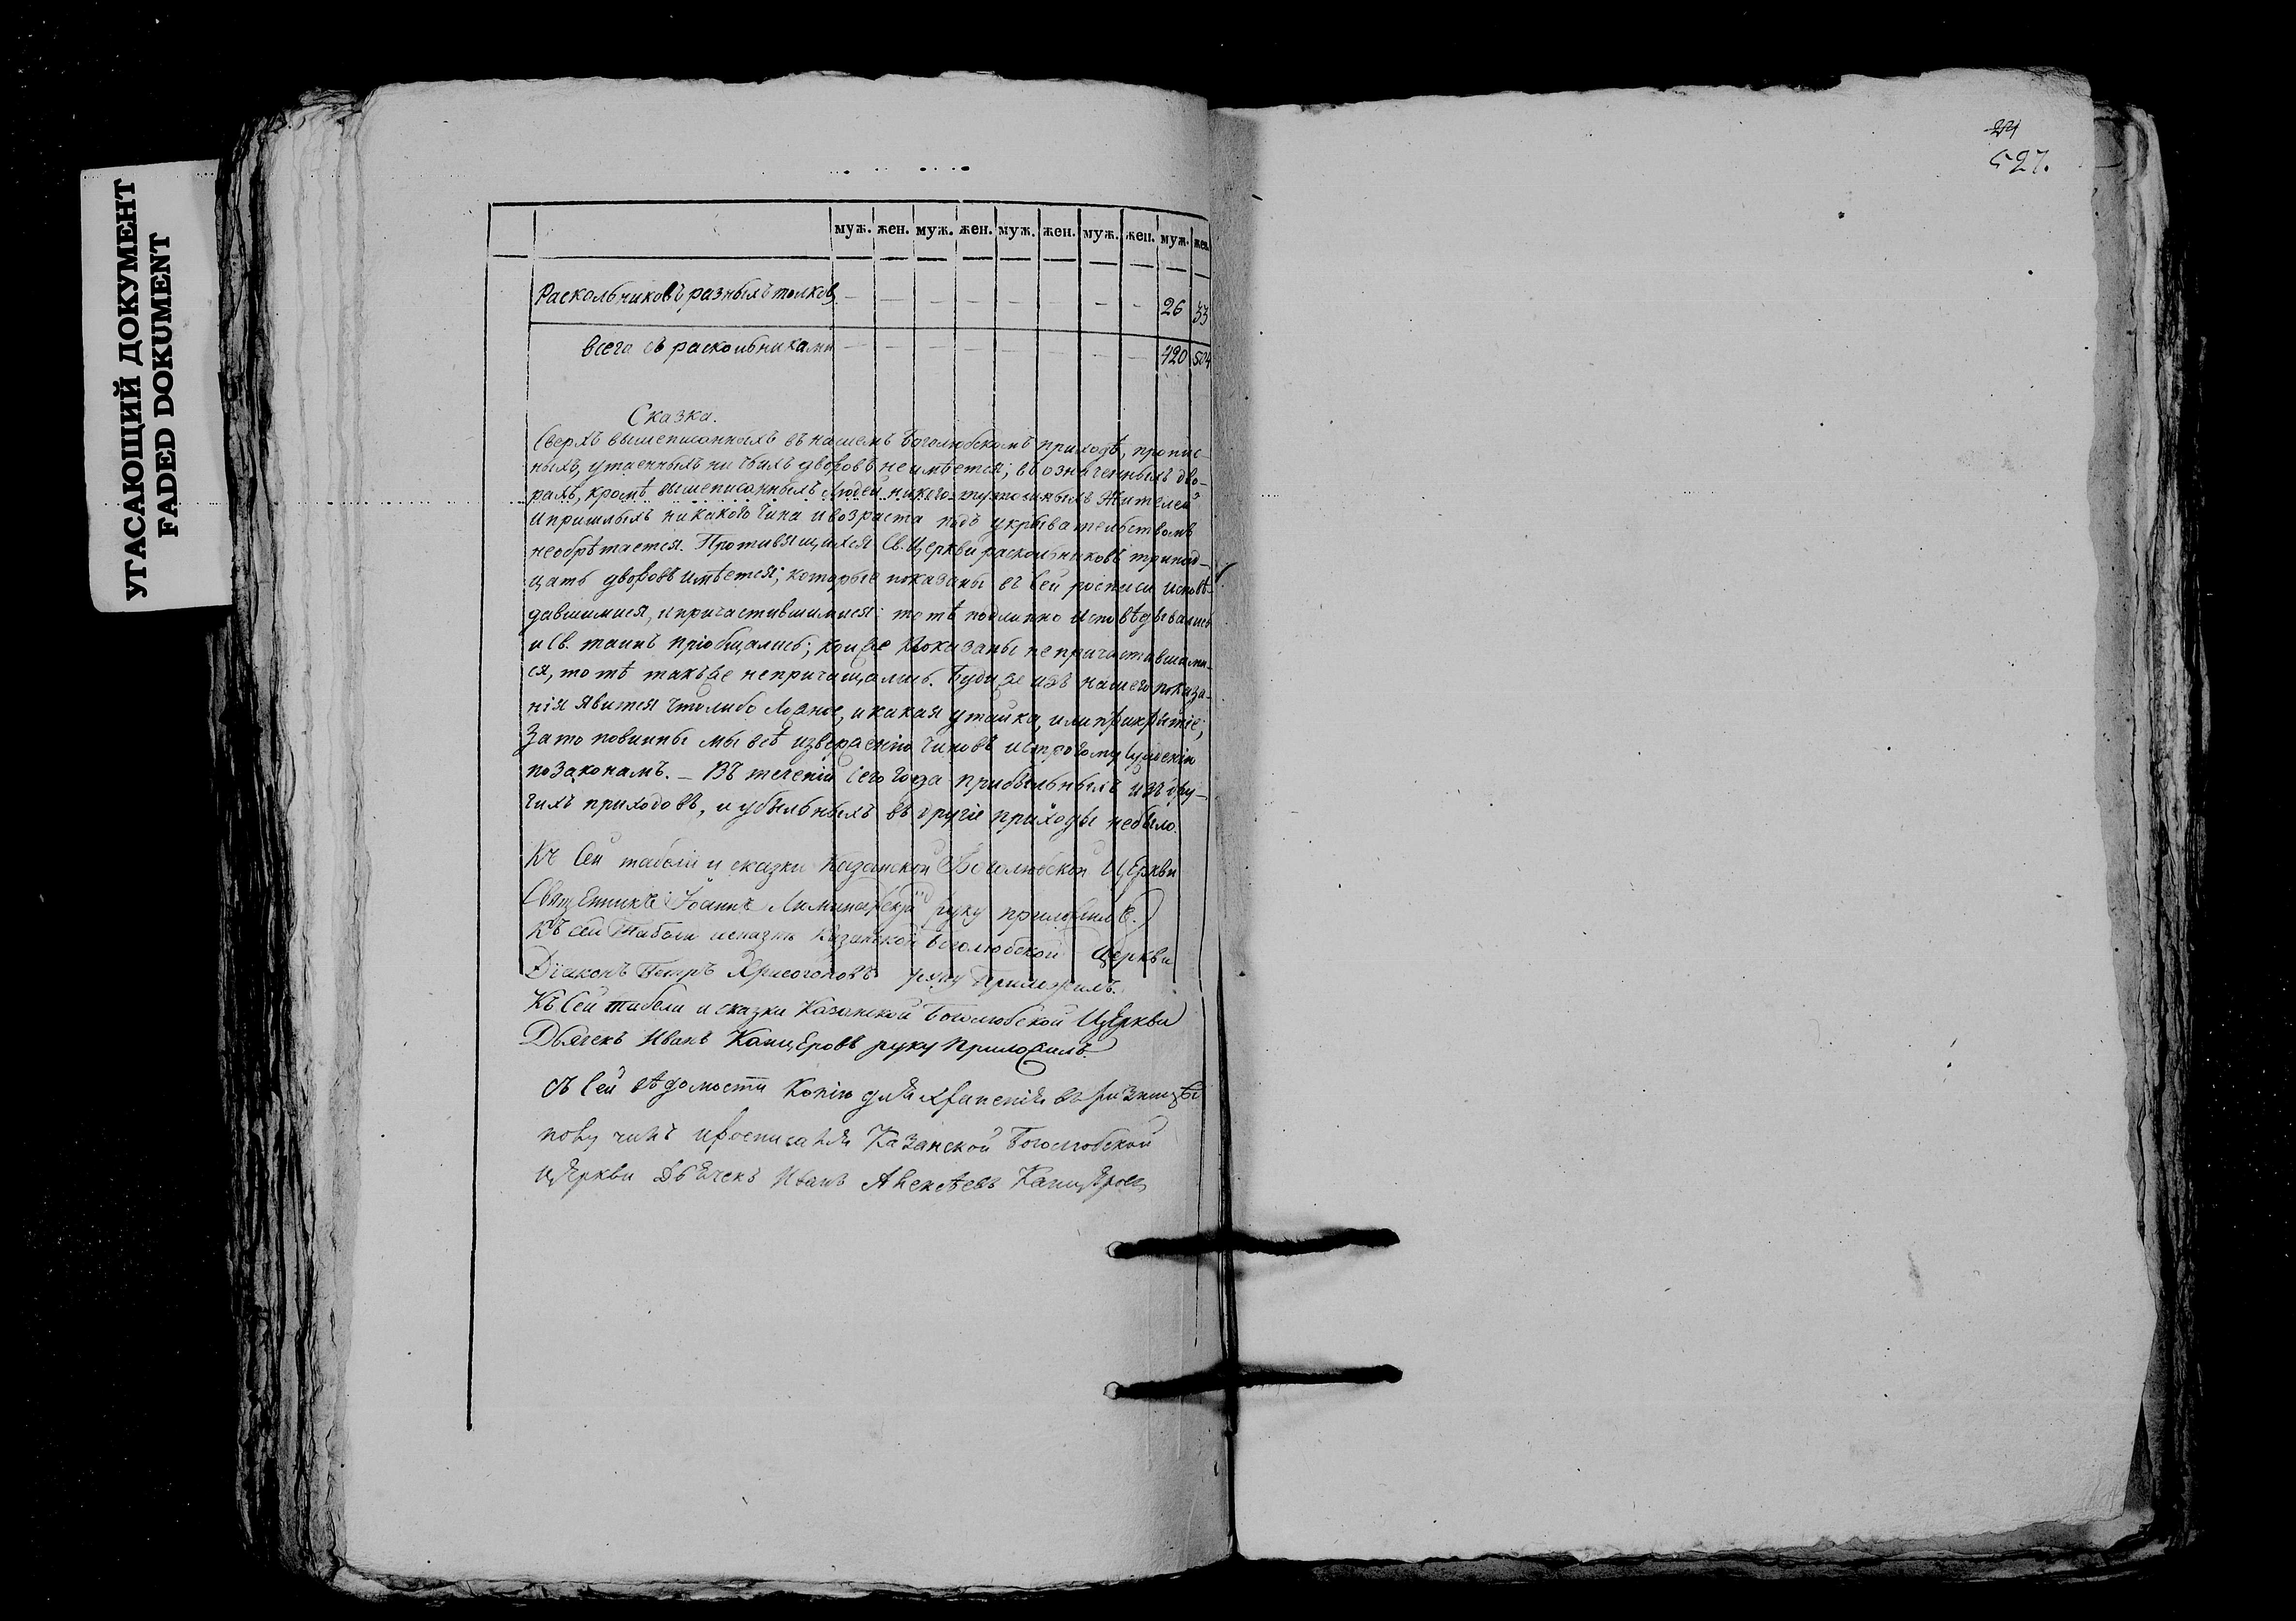 УГАСАЮЩИЙ ДОКУМЕНТ
FADED DOKUMENT
муж. жен. муж. жен. муж. жен. муж. жен. муж. жен.
Раскольниковъ разныхъ толков. — — — — — — — 26 33
всего съ раскольниками — — — — — — — 420 504
Сказка.
Сверхъ вышеписанныхъ въ нашемъ Боголюбскомъ приходѣ, пропис-
ныхъ, утаенныхъ ни чьихъ дворовъ неимѣется; въ означенныхъ дво-
рахъ, кромѣ вышеписанныхъ людей никого тутошныхъ Жителей
и пришлыхъ никакого чина и возраста подъ укрывательствомъ
необрѣтается. Противящихся Св. Церкви раскольниковъ тринад-
цать дворовъ имѣется; которые показаны въ сей росписи исповѣ-
давшимися, и причастившимися: то тѣ подлинно исповѣдывались
и Св. таинъ пріобщались; кои же показаны непричастившими-
ся, то тѣ такъ же непричащались. Буди же изъ нашего показа-
нія явится что либо ложное, и какая утайка, или прикрытіе;
За то повинны мы всѣ изверженію чиновъ и строгому сужденію
по законамъ. — Въ теченіи сего года прибыльныхъ изъ дру-
гихъ приходовъ, и убыльныхъ въ другіе приходы небыло.
Къ сей табели и сказки Казанской Боголюбской Церкви
Священникъ Іоаннъ руку приложилъ.
Къ сей табели и сказки Казанской Боголюбской Церкви
Діаконъ Петръ Хрисогоновъ руку приложилъ.
Къ сей табели и сказки Казанской Боголюбской Церкви
Дьячекъ Иванъ Канцеровъ руку приложилъ.
съ сей вѣдомости копію для храненія въ ризницѣ
получилъ и росписался Казанской Боголюбской
церкви дьячекъ Иванъ Алексѣевъ Канцеровъ
527.